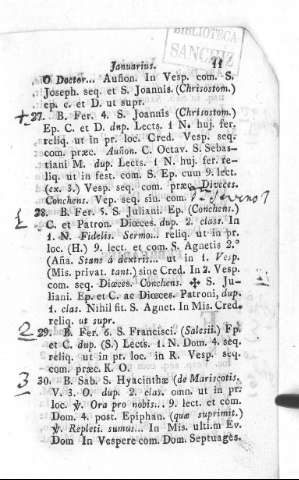 BIBLIOTECA
SANCHIZ
Januarius. 11
O Doctor... Auñon. In Vesp. com. S.
Joseph. seq. et S. Joannis. (Chrisostom.)
ep. c. et D. ut supr.
+ 27. B. Fer. 4. S. Joannis (Chrisostom.)
Ep. C. et D. dup. Lects. 1 N. huj. fer.
reliq. ut in pr. loc. Cred. Vesp. seq.
com. præc. Auñon. C. Octav. S. Sebas-
tiani M. dup. Lects. 1 N. huj. fer. re-
liq. ut in fest. com. S. Ep. cum 9. lect.
(ex. 3.) Vesp. seq. com. præc. Diœces.
Conchens. Vep. seq. sin. com.
1 28. B. Fer. 5. S. Juliani. Ep. (Conchens.)
C. et Patron. Diœces. dup. 2. class. In
1. N. Fidelis. Sermo... reliq. ut in pr.
loc. (H.) 9. lect. et com. S. Agnetis 2.º
(Aña. Stans á dextris... ut in 1. Vesp.
(Mis. privat. tant.) sine Cred. In 2. Vesp.
com. seq. Diœces. Conchens. ✠ S. Ju-
liani. Ep. et C. ac Diœces. Patroni, dup.
1. clas. Nihil fit S. Agnet. In Mis. Cred.
reliq. ut supr.
2 29. B. Fer. 6. S. Francisci. (Salesii.) Ep.
et C. dup. (S.) Lects. 1. N. Dom. 4. seq.
reliq. ut in pr. loc. in R. Vesp. seq.
com. præc. K. O.
3 30. B. Sab. S. Hyacinthæ (de Mariscotis,
V. 3. O. dup. 2. clas. omn. ut in pr.
loc. ℣. Ora pro nobis... 9. lect. et com.
Dom. 4. post. Epiphan. (quæ suprimit.)
℣. Repleti. sumus... In Mis. ultim Ev.
Dom In Vespere com. Dom. Septuages.